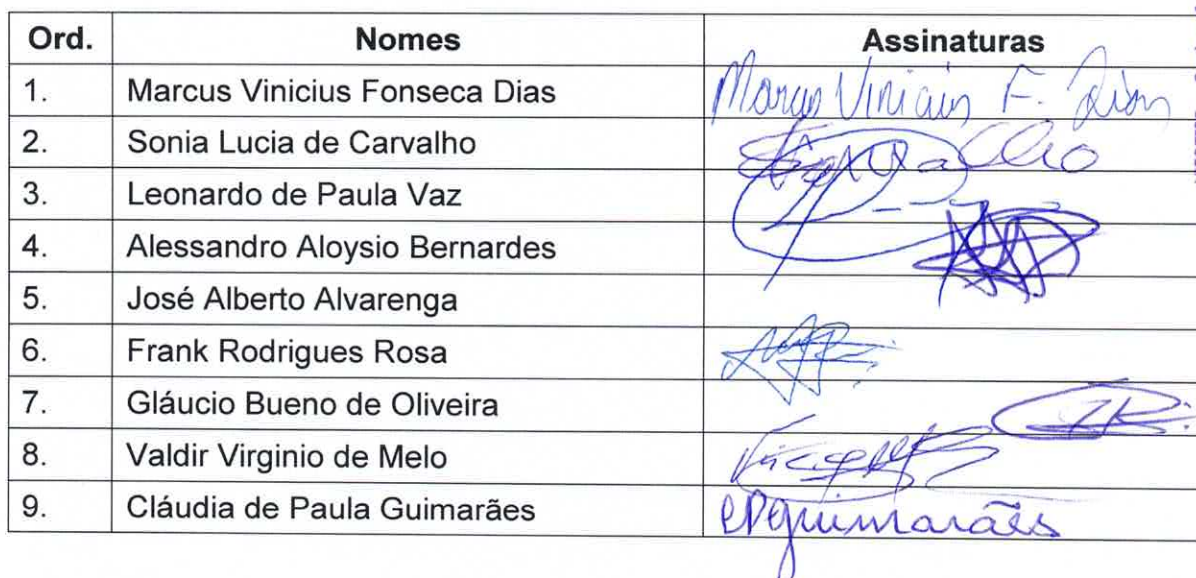 Ord. Nomes Assinaturas
1. Marcus Vinicius Fonseca Dias Marcus Vinicius F. Dias
2. Sonia Lucia de Carvalho
3. Leonardo de Paula Vaz
4. Alessandro Aloysio Bernardes
5. José Alberto Alvarenga
6. Frank Rodrigues Rosa
7. Gláucio Bueno de Oliveira
8. Valdir Virginio de Melo
9. Cláudia de Paula Guimarães CPGuimarães